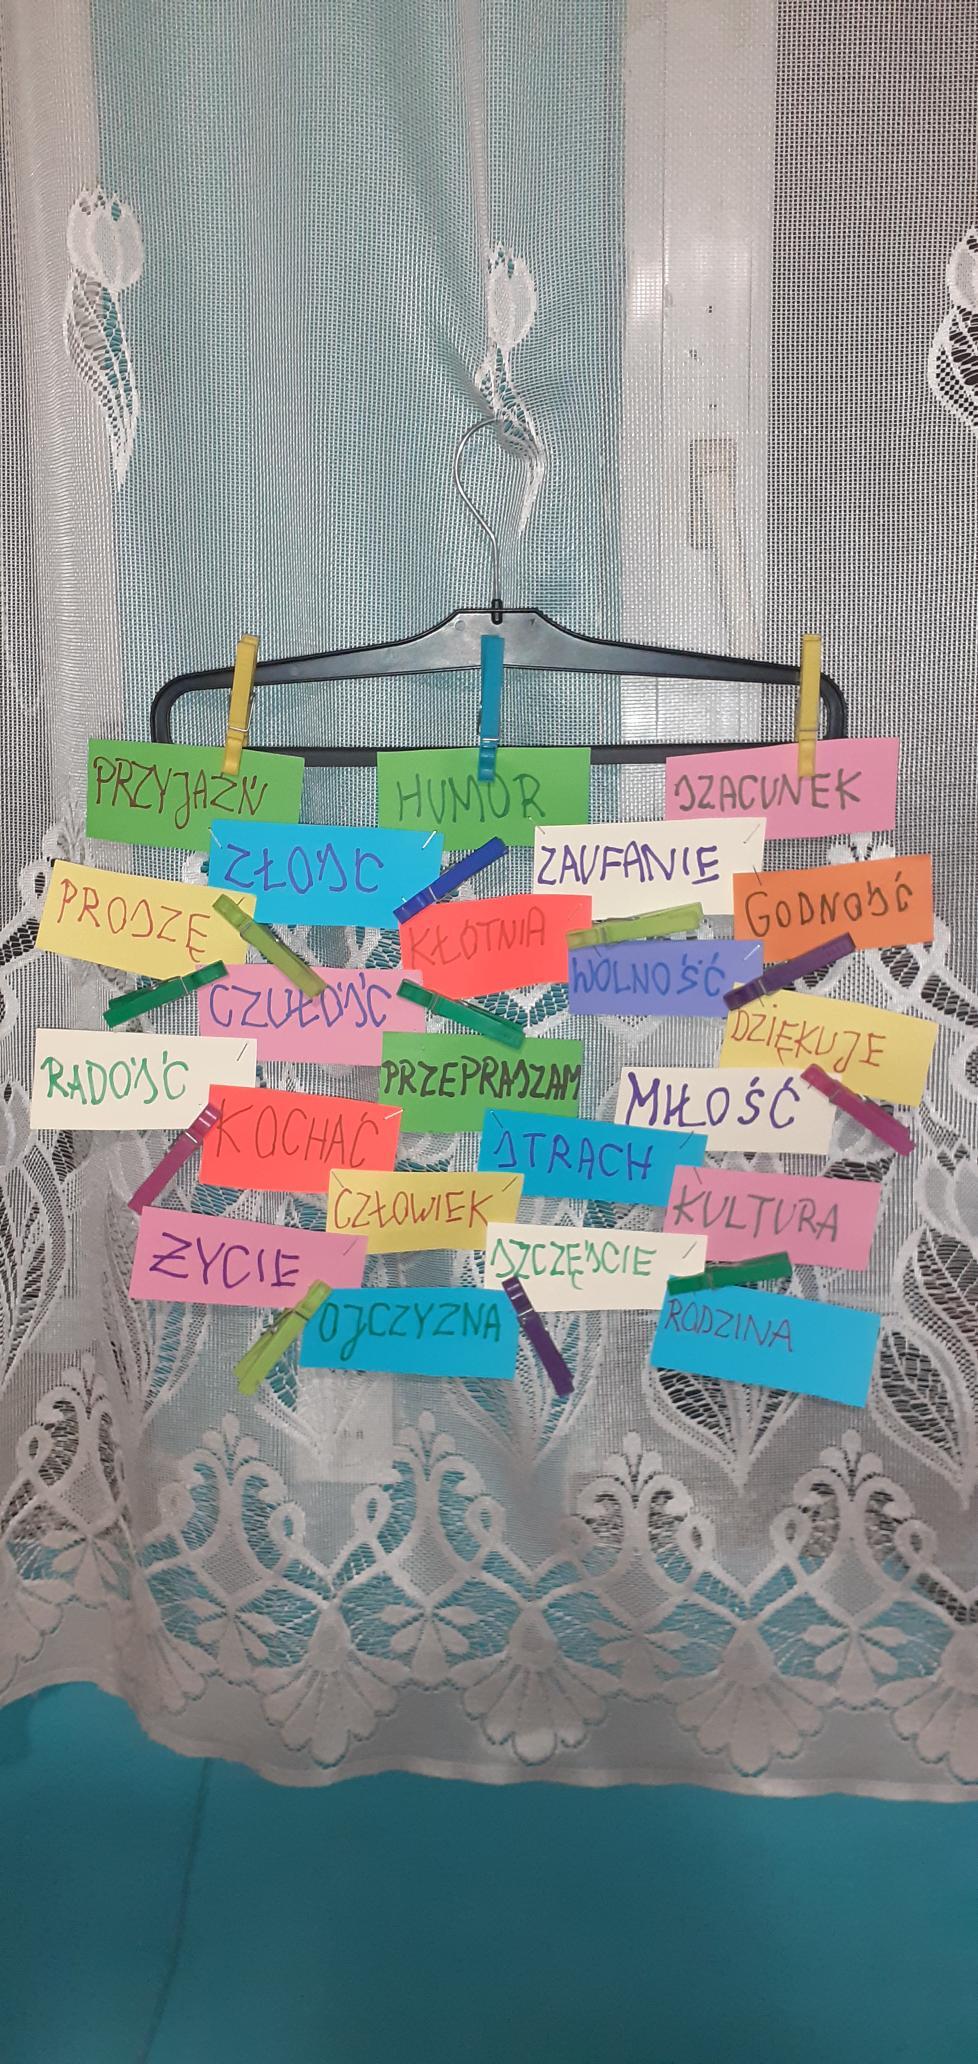 PRZYJAZŃ
HUMOR
SZACUNEK
ZŁOŚC
ZAUFANIE
PROSZĘ
KŁÓTNIA
GODNOŚĆ
CZUŁOŚĆ
WOLNOŚĆ
DZIĘKUJE
RADOŚĆ
PRZEPRASZAM
MIŁOŚĆ
KOCHAĆ
STRACH
CZŁOWIEK
KULTURA
ŻYCIE
SZCZĘŚCIE
OJCZYZNA
RODZINA